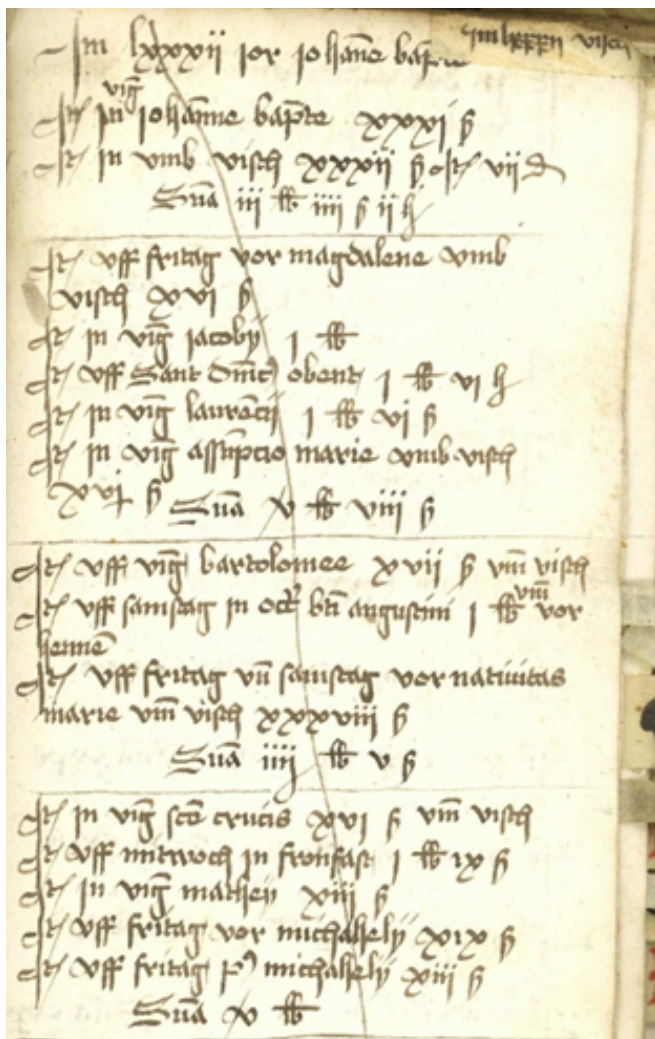 Im lxxxii ior iohãne bapt
im lxxxii
vig̃
It in iohãnne bapt̃e xxxi ß
It in vmb visch xxxii ß it vii d
Sũa iii lb iiii ß ii h
It vff fritag vor magdalene vmb
visch xvi ß
It in vig̃ iacobij i lb
It vff Sant dñic obent i lb vi h
It in vig̃ laurẽcii i lb vi ß
It in vig̃ assũpcio marie vmb visch
xvj ß Sũa v lb viii ß
It vff vig̃ bartolomee xvii ß vm̃ visch
It vff samstag in oct̃ bt̃i augustini i lb vm̃ vor
hennẽ
It vff fritag vñ samstag vor natiuitas
marie vm̃ visch xxxviii ß
Sũa iiij lb v ß
It in vig̃ sct̃e crucis xvi ß vm̃ visch
It vff mitwoch in fronfast i lb ix ß
It in vig̃ mathej xiii ß
It vff fritag vor michahelij xix ß
It vff fritag p9 michahelij xiii ß
Sũa v lb